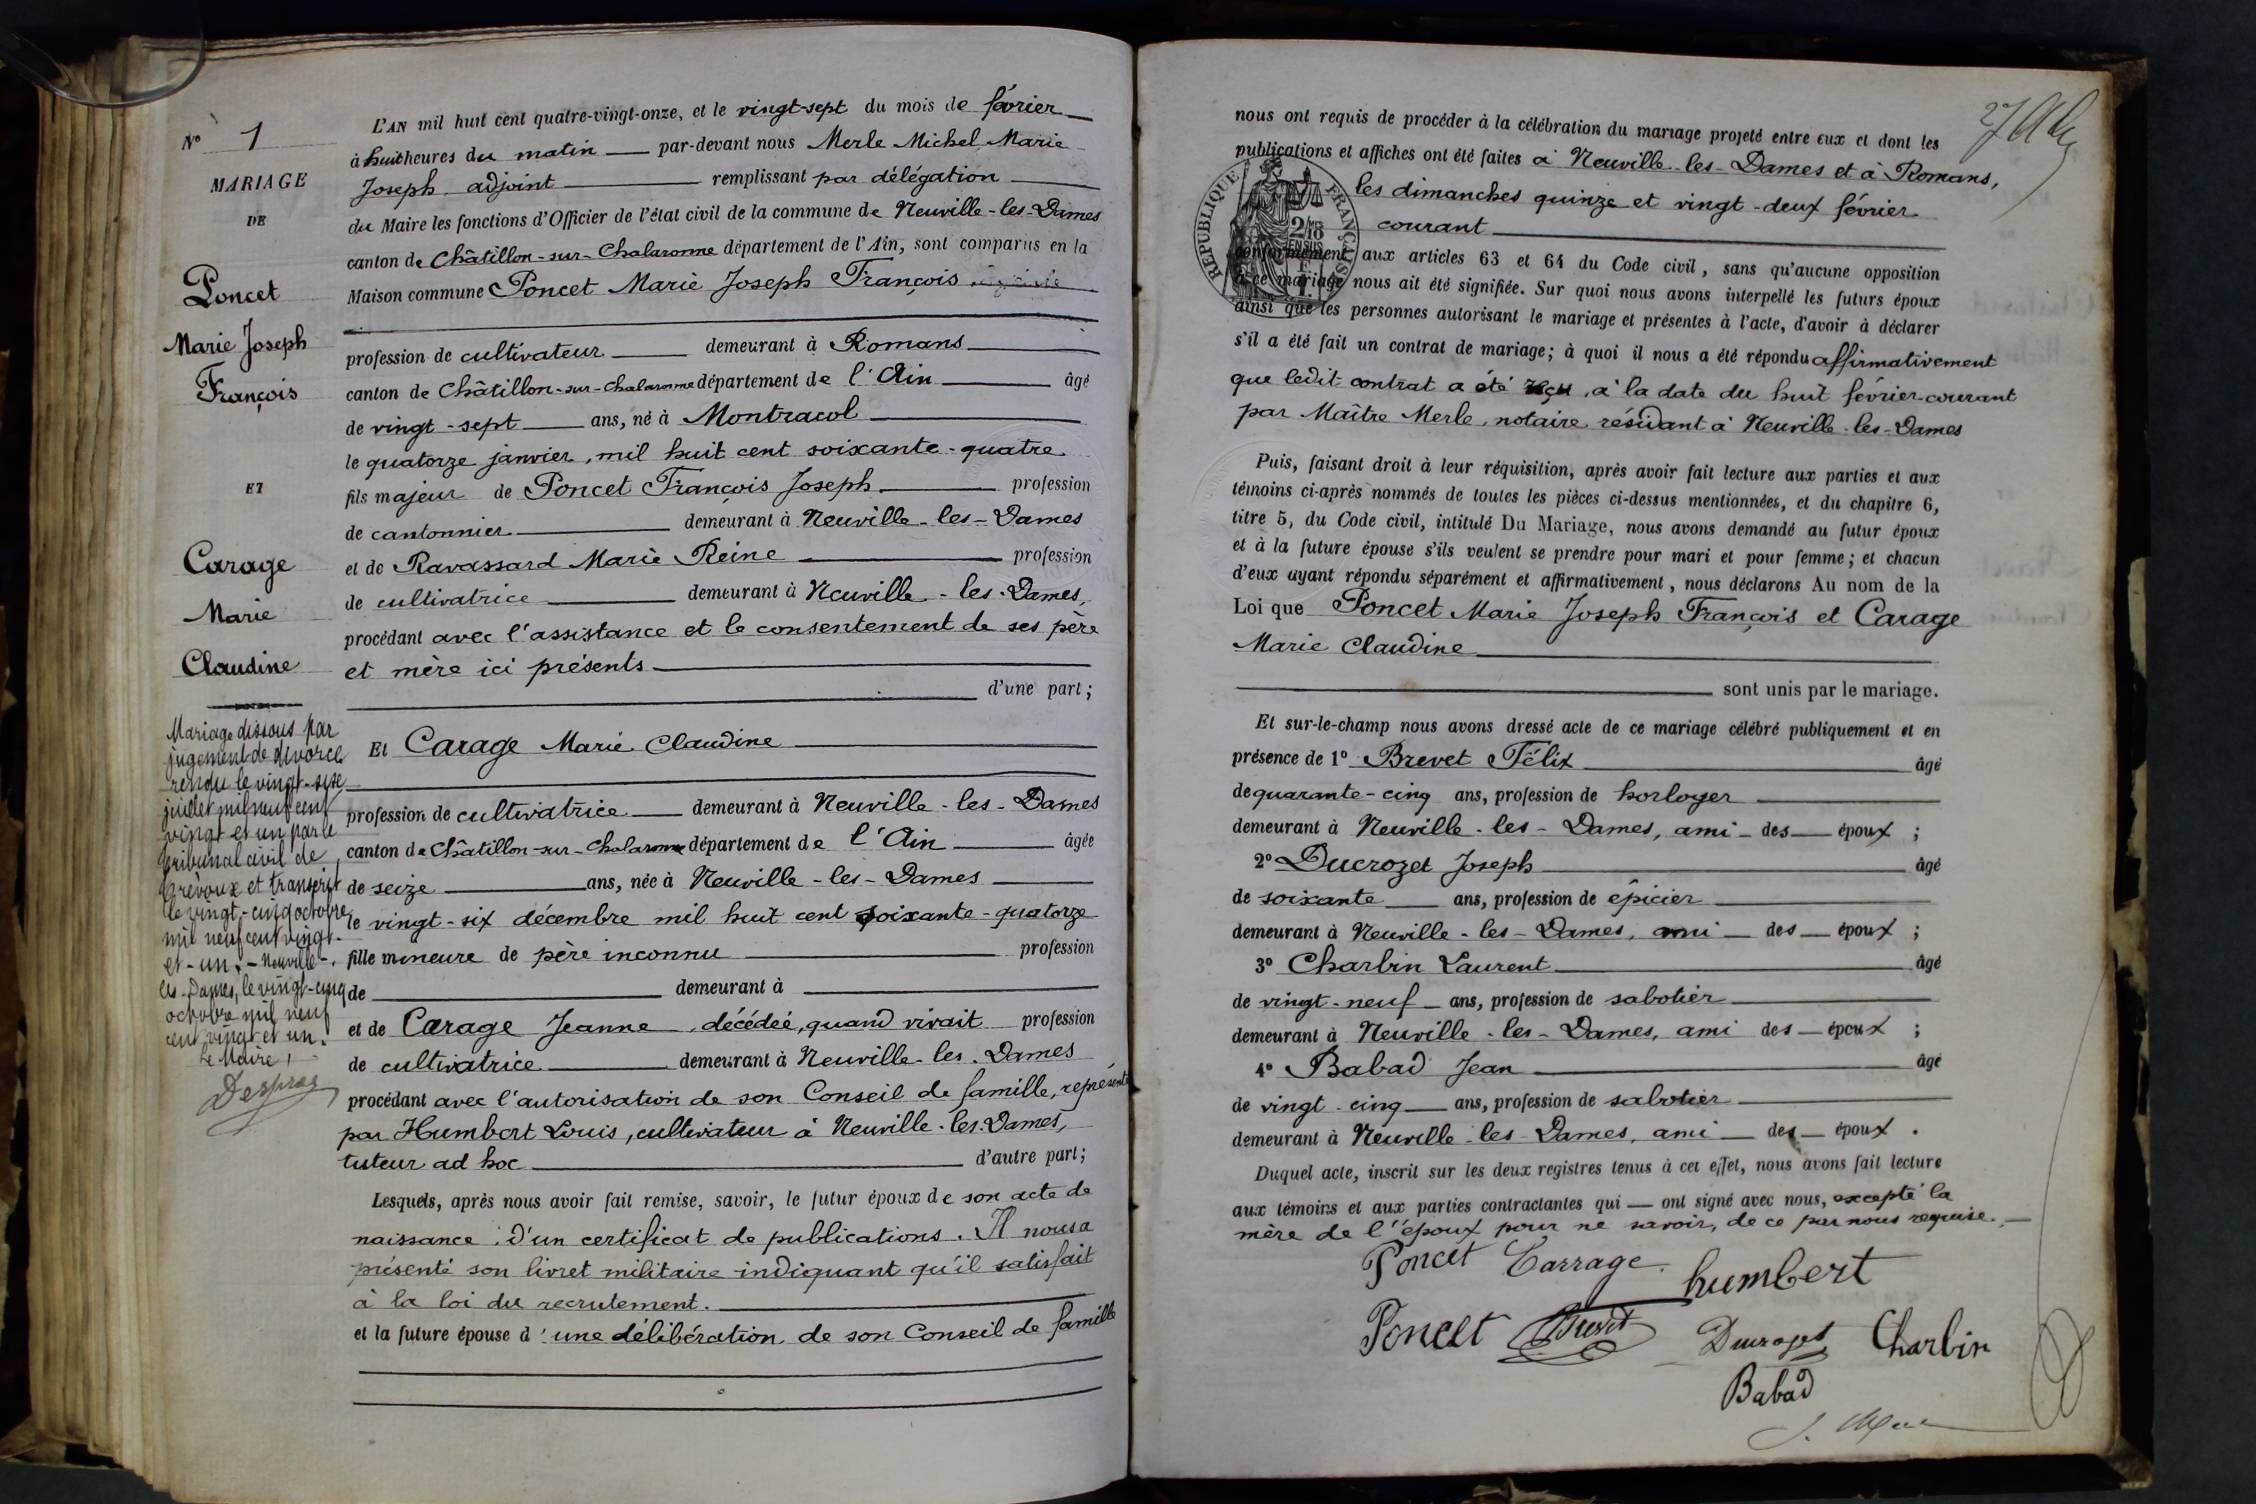 N° 1
MARIAGE
DE
Poncet
Marie Joseph
François
ET
Carage
Marie
Claudine
Mariage dissous par
jugement de divorce
rendu le vingt-six
juillet mil neuf cent
vingt et un par le
tribunal civil de
Trévoux et transcrit
le vingt-cinq octobre
mil neuf cent vingt-
et-un. - Neuville-
les-Dames, le vingt-cinq
octobre mil neuf
cent vingt et un.
Le Maire,
L'AN mil huit cent quatre-vingt-onze, et le vingt-sept du mois de février
à huit heures du matin par-devant nous Merle Michel Marie
Joseph adjoint remplissant par délégation
du Maire les fonctions d'Officier de l'état civil de la commune de Neuville-les-Dames
canton de Châtillon-sur-Chalaronne département de l'Ain, sont comparus en la
Maison commune Poncet Marie Joseph François
profession de cultivateur demeurant à Romans
canton de Châtillon-sur-Chalaronne département de l'Ain âgé
de vingt-sept ans, né à Montracol
le quatorze janvier, mil huit cent soixante-quatre
fils majeur de Poncet François Joseph profession
de cantonnier demeurant à Neuville-les-Dames
et de Ravassard Marie Reine profession
de cultivatrice demeurant à Neuville-les-Dames,
procédant avec l'assistance et le consentement de ses père
et mère ici présents
d'une part;
Et Carage Marie Claudine
profession de cultivatrice demeurant à Neuville-les-Dames
canton de Châtillon-sur-Chalaronne département de l'Ain âgée
de seize ans, née à Neuville-les-Dames
le vingt-six décembre mil huit cent soixante-quatorze
fille mineure de père inconnu profession
de demeurant à
et de Carage Jeanne, décédée, quand vivait profession
de cultivatrice demeurant à Neuville-les-Dames
procédant avec l'autorisation de son Conseil de famille, représenté
par Humbert Louis, cultivateur à Neuville-les-Dames,
tuteur ad hoc d'autre part;
Lesquels, après nous avoir fait remise, savoir, le futur époux de son acte de
naissance, d'un certificat de publications. Il nous a
présenté son livret militaire indiquant qu'il satisfait
à la loi du recrutement.
et la future épouse d'une délibération de son Conseil de famille
27
nous ont requis de procéder à la célébration du mariage projeté entre eux et dont les
publications et affiches ont été faites à Neuville-les-Dames et à Romans,
les dimanches quinze et vingt-deux février
courant
RÉPUBLIQUE FRANÇAISE
conformément aux articles 63 et 64 du Code civil, sans qu'aucune opposition
à ce mariage nous ait été signifiée. Sur quoi nous avons interpellé les futurs époux
ainsi que les personnes autorisant le mariage et présentes à l'acte, d'avoir à déclarer
s'il a été fait un contrat de mariage; à quoi il nous a été répondu affirmativement
que ledit contrat a été reçu, à la date du huit février courant
par Maître Merle, notaire résidant à Neuville-les-Dames
Puis, faisant droit à leur réquisition, après avoir fait lecture aux parties et aux
témoins ci-après nommés de toutes les pièces ci-dessus mentionnées, et du chapitre 6,
titre 5, du Code civil, intitulé Du Mariage, nous avons demandé au futur époux
et à la future épouse s'ils veulent se prendre pour mari et pour femme; et chacun
d'eux ayant répondu séparément et affirmativement, nous déclarons Au nom de la
Loi que Poncet Marie Joseph François et Carage
Marie Claudine
sont unis par le mariage.
Et sur-le-champ nous avons dressé acte de ce mariage célébré publiquement et en
présence de 1° Brevet Félix âgé
de quarante-cinq ans, profession de horloger
demeurant à Neuville-les-Dames, ami des époux ;
2° Ducrozet Joseph âgé
de soixante ans, profession de épicier
demeurant à Neuville-les-Dames, ami des époux ;
3° Charbin Laurent âgé
de vingt-neuf ans, profession de sabotier
demeurant à Neuville-les-Dames, ami des époux ;
4° Babad Jean âgé
de vingt-cinq ans, profession de sabotier
demeurant à Neuville-les-Dames, ami des époux.
Duquel acte, inscrit sur les deux registres tenus à cet effet, nous avons fait lecture
aux témoins et aux parties contractantes qui ont signé avec nous, excepté la
mère de l'époux pour ne savoir, de ce par nous requise.
Poncet Carrage humbert
Poncet Brevet Ducrozet Charbin
Babad